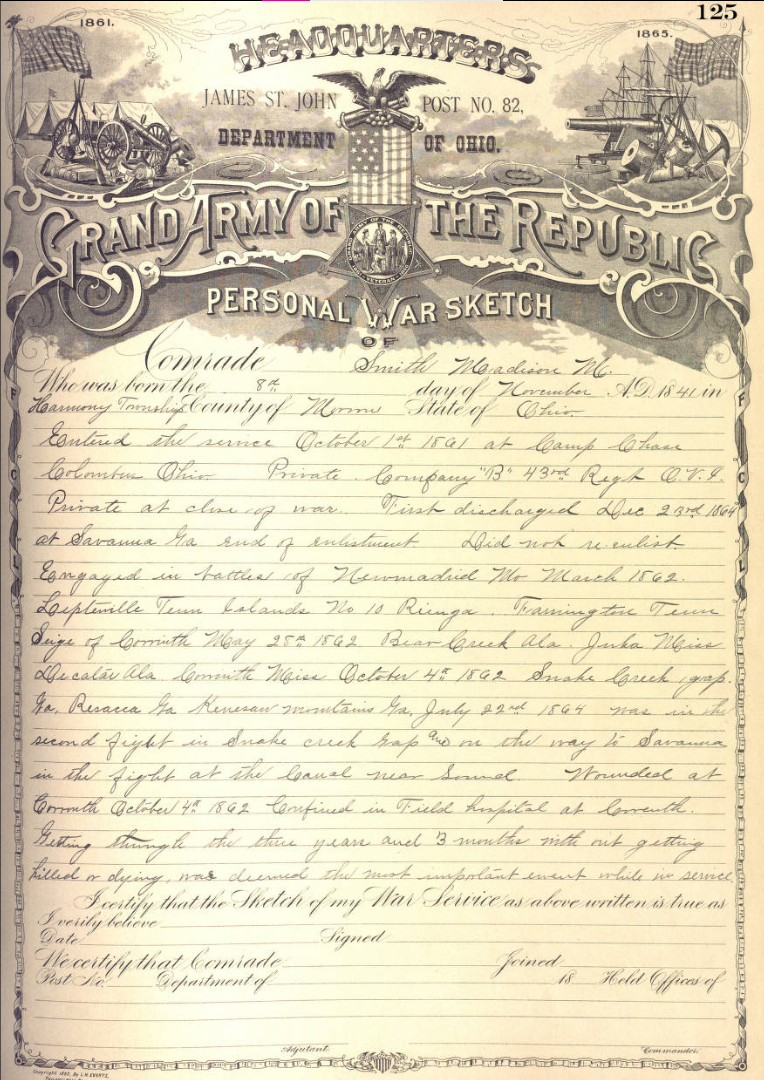 125
1861.
1865.
HEADQUARTERS
JAMES ST. JOHN POST NO. 82,
DEPARTMENT OF OHIO.
GRAND ARMY OF THE REPUBLIC
PERSONAL WAR SKETCH
OF
Comrade Smith Meadison M.
Who was born the 8th day of November A.D. 1841 in
Harmony Township County of Morrow State of Ohio
Entered the service October 1st 1861 at Camp Chase
Columbus Ohio Private Company "B" 43rd Regt O.V.I.
Private at close of war. First discharged Dec 23rd 1864
at Savanna Ga end of enlistment Did not re.enlist.
Engaged in battles of Newmadrid Mo March 1862.
Tenn Islands No 10 Rienga. Farrington Tenn
Seige of Corrinth May 28th 1862 Bear Creek Ala. Juka Miss
Decatar Ala. Corrinth Miss October 4th 1862 Snake Creek gap.
Ga. Resacca Ga Kenesaw mountains Ga. July 22nd 1864 was in the
second fight in Snake creek Gap and on the way to Savanna
in the fight at the Canal near Sound. Wounded at
October 4th 1862 Confined in Field hospital at
Getting through the three years and 3 months with out getting
killed or dying, was deemed the most important event while in service
I certify that the Sketch of my War Service as above written is true as
I verily believe
Date Signed
We certify that Comrade Joined
Post No. Department of 18 Held Offices of
Adjutant. Commander.
Copyright 1890, By L.H. EVERTS,